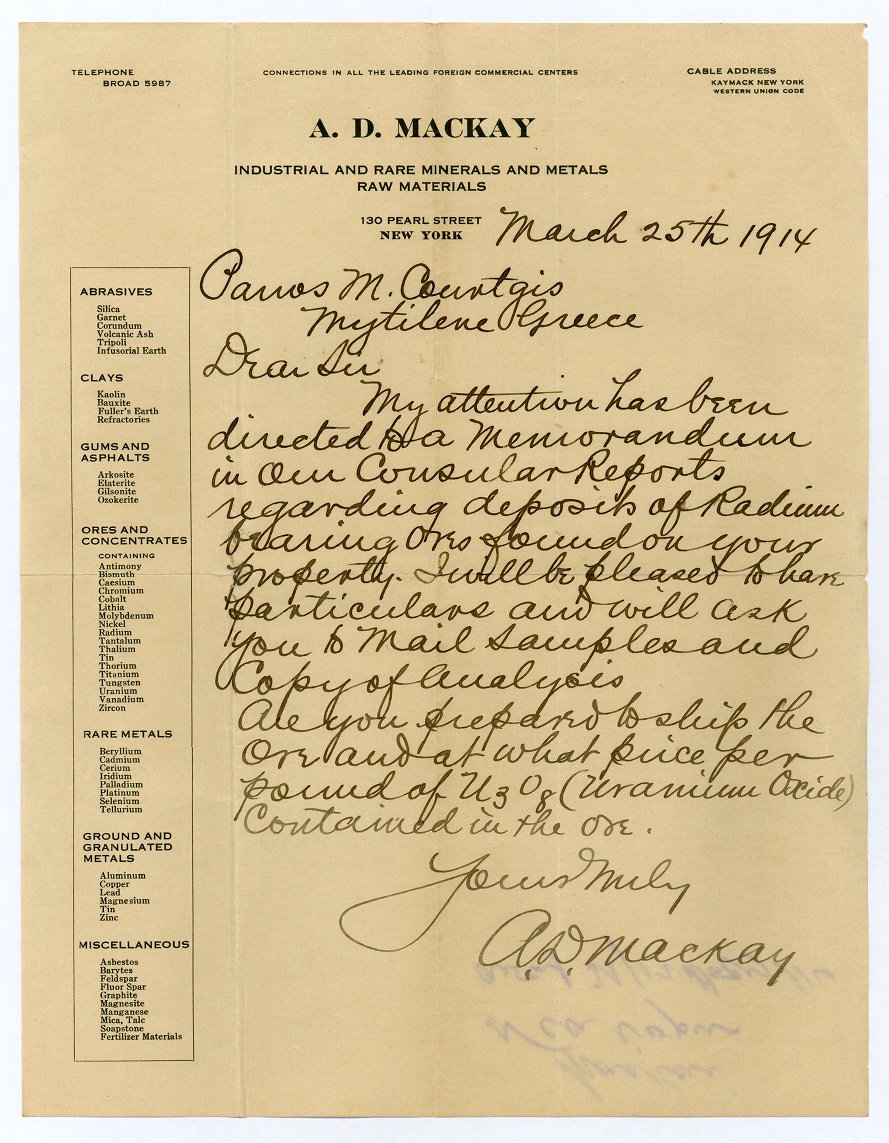 TELEPHONE
BROAD 5987
CONNECTIONS IN ALL THE LEADING FOREIGN COMMERCIAL CENTERS
CABLE ADDRESS
KAYMACK NEW YORK
WESTERN UNION CODE
A. D. MACKAY
INDUSTRIAL AND RARE MINERALS AND METALS
RAW MATERIALS
130 PEARL STREET
NEW YORK
March 25th 1914
Panos M. Courtgis
Mytilene Greece
Dear Sir
My attention has been
directed to a Memorandum
in Our Consular Reports
regarding deposits of Radium
bearing Ores found on your
property. I will be pleased to have
particulars and will ask
you to Mail Samples and
Copy of Analysis
Are you prepared to ship the
Ore and at what price per
pound of U3O8 (Uranium Oxide)
Contained in the Ore.
Yours truly
A. D. Mackay
ABRASIVES
Silica
Garnet
Corundum
Volcanic Ash
Tripoli
Infusorial Earth
CLAYS
Kaolin
Bauxite
Fuller's Earth
Refractories
GUMS AND
ASPHALTS
Arkosite
Elaterite
Gilsonite
Ozokerite
ORES AND
CONCENTRATES
CONTAINING
Antimony
Bismuth
Caesium
Chromium
Cobalt
Lithia
Molybdenum
Nickel
Radium
Tantalum
Thalium
Tin
Thorium
Titanium
Tungsten
Uranium
Vanadium
Zircon
RARE METALS
Beryllium
Cadmium
Cerium
Iridium
Palladium
Platinum
Selenium
Tellurium
GROUND AND
GRANULATED
METALS
Aluminum
Copper
Lead
Magnesium
Tin
Zinc
MISCELLANEOUS
Asbestos
Barytes
Feldspar
Fluor Spar
Graphite
Magnesite
Manganese
Mica, Talc
Soapstone
Fertilizer Materials